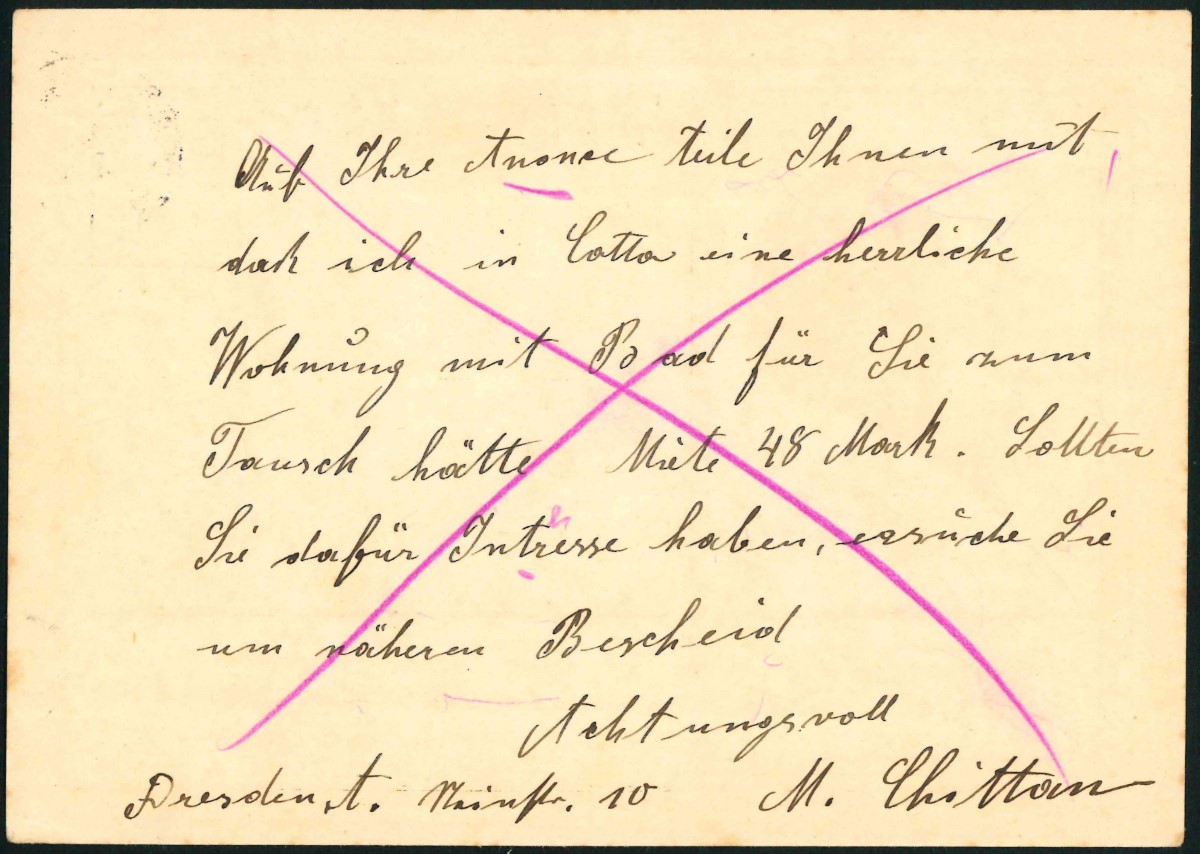 Auf Ihre Anonce teile Ihnen mit
daß ich in Cotta eine herrliche
Wohnung mit Bad für Sie zum
Tausch hätte Miete 48 Mark. Sollten
Sie dafür Intresse haben, ersuche Sie
um näheren Bescheid
Achtungsvoll
Dresden A. 10 M.